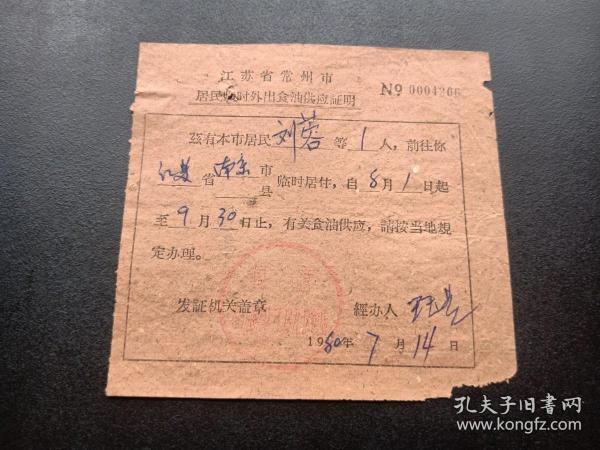 江苏省常州市
居民临时外出食油供应証明
№ 0004266
茲有本市居民刘蓉等1人，前往你
江苏省南京市县临时居住，自8月1日起
至9月30日止，有关食油供应，請按当地規
定办理。
发証机关盖章 經办人
1980年7月14日
孔夫子旧书网
www.kongfz.com